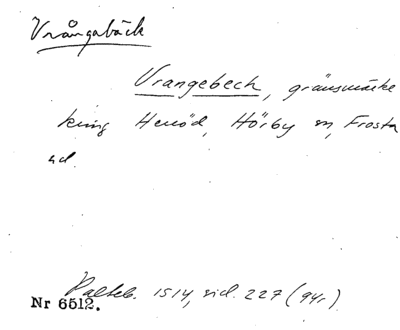 Vrångabäck
Vrangebeck, gränsmärke
kring Henöd, Hörby sn, Frosta
hd.
Palteb. 1514, sid. 227 (94r)
Nr 6512.